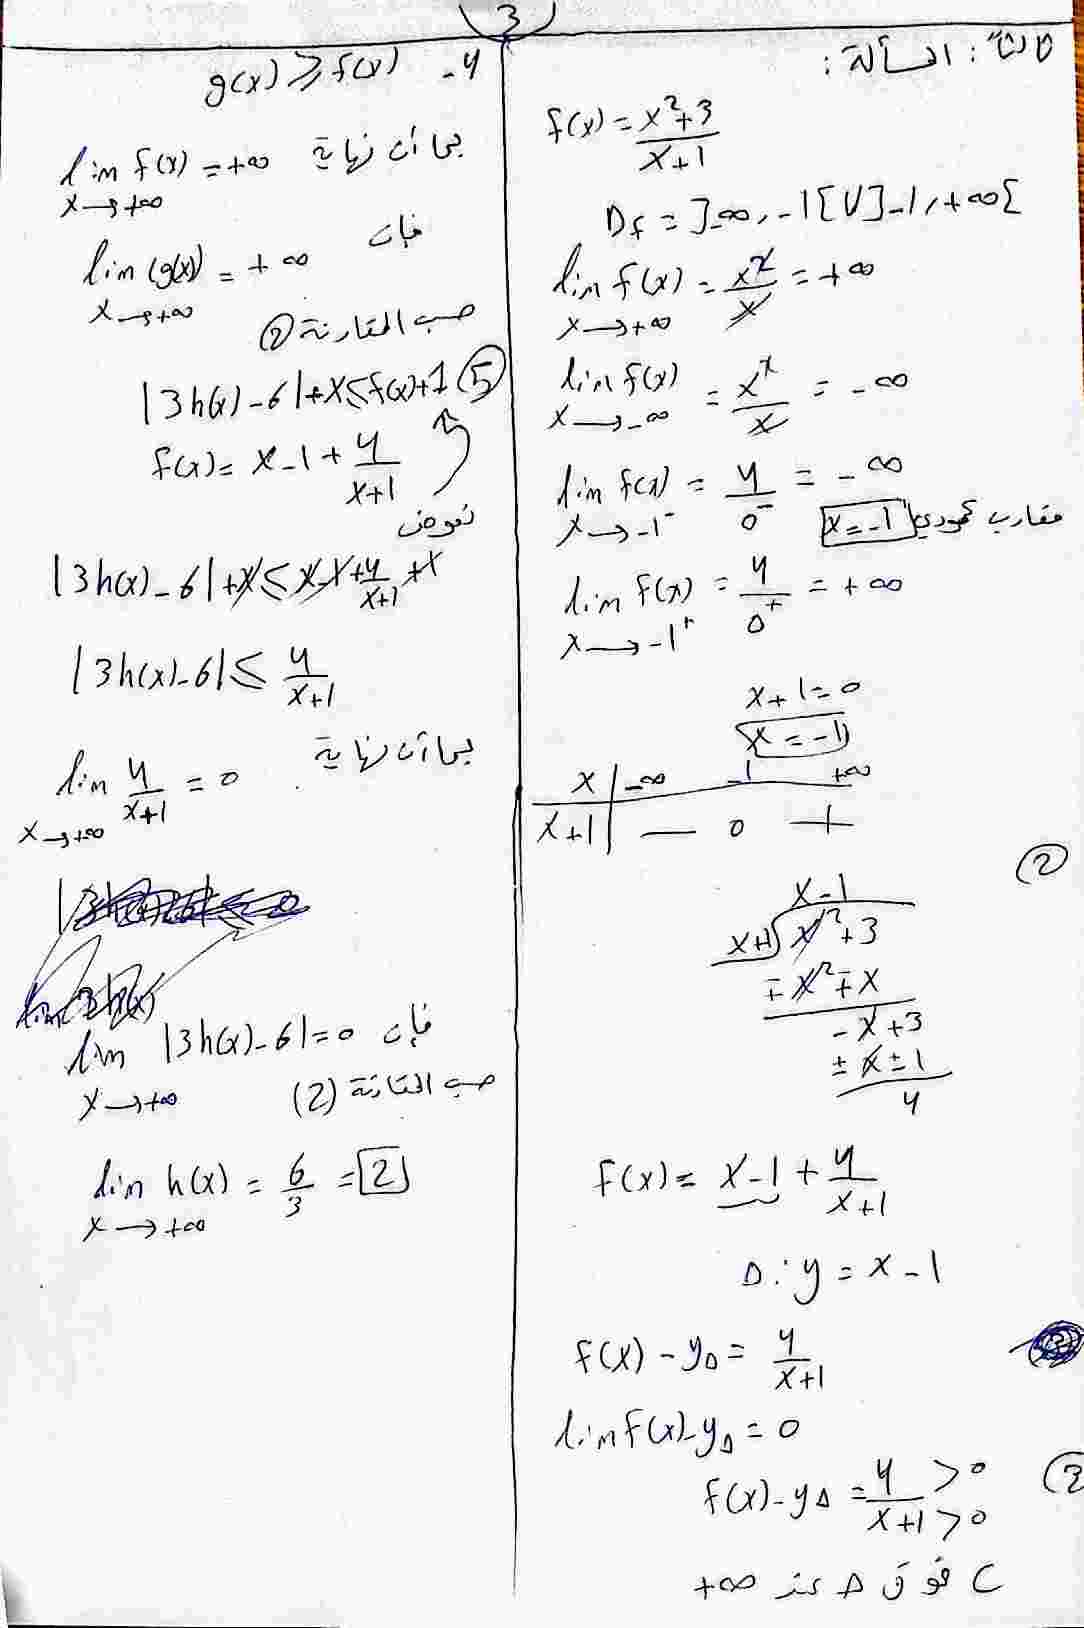 3
ثالثاً: المسألة:
f(x) = x²+3 / x+1
Df = ]-∞, -1[ U ]-1, +∞[
lim f(x) = x² / x = +∞
x → +∞
lim f(x) = x² / x = -∞
x → -∞
lim f(x) = 4 / 0⁻ = -∞
x → -1⁻
x = -1 مقارب عمودي
lim f(x) = 4 / 0⁺ = +∞
x → -1⁺
x + 1 = 0
x = -1
x | -∞ -1 +∞
x+1 | — 0 +
2
x - 1
x+1 x² + 3
∓ x² ∓ x
- x + 3
± x ± 1
4
f(x) = x - 1 + 4 / x+1
Δ: y = x - 1
f(x) - yΔ = 4 / x+1
lim f(x) - yΔ = 0
3
f(x) - yΔ = 4 > 0 / x+1 > 0
C فوق Δ عند +∞
4- g(x) ≥ f(x)
بما أن نهاية lim f(x) = +∞
x → +∞
فإن
lim (g(x)) = +∞
x → +∞
حسب المقارنة 2
5 |3h(x) - 6| + x ≤ f(x) + 1
f(x) = x - 1 + 4 / x+1
نعوض
|3h(x) - 6| + x ≤ x - 1 + 4 / x+1 + 1
|3h(x) - 6| ≤ 4 / x+1
بما أن نهاية
lim 4 / x+1 = 0
x → +∞
فإن lim |3h(x) - 6| = 0
x → +∞
حسب المقارنة (2)
lim h(x) = 6 / 3 = 2
x → +∞